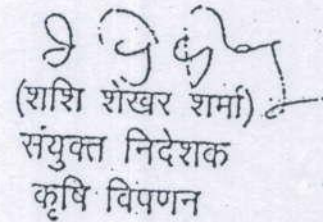 (शशि शेखर शर्मा)
संयुक्त निदेशक
कृषि विपणन